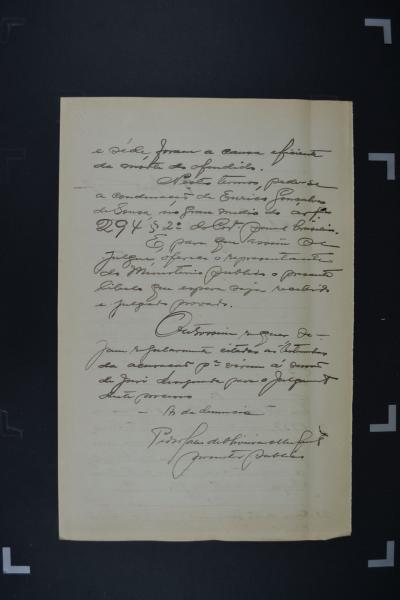 e séde, foram a causa efficiente
da morte do offendido.
Nestes termos, pede-se
a condemnação de Eurico Gonçalves
de Sousa, no grau medio do art.
294 § 2º do Cod. penal brasileiro.
E, para que assim se
julgue, offerece o representante
do Ministerio publico o presente
libello que espera seja recebido
e julgado provado.
Outrossim requer se-
jam regularmente citadas as testemunhas
da accusação pª virem á sessão
do Jury designada para o julgamento
deste processo
R. da denuncia
de Oliveira
promotor publico